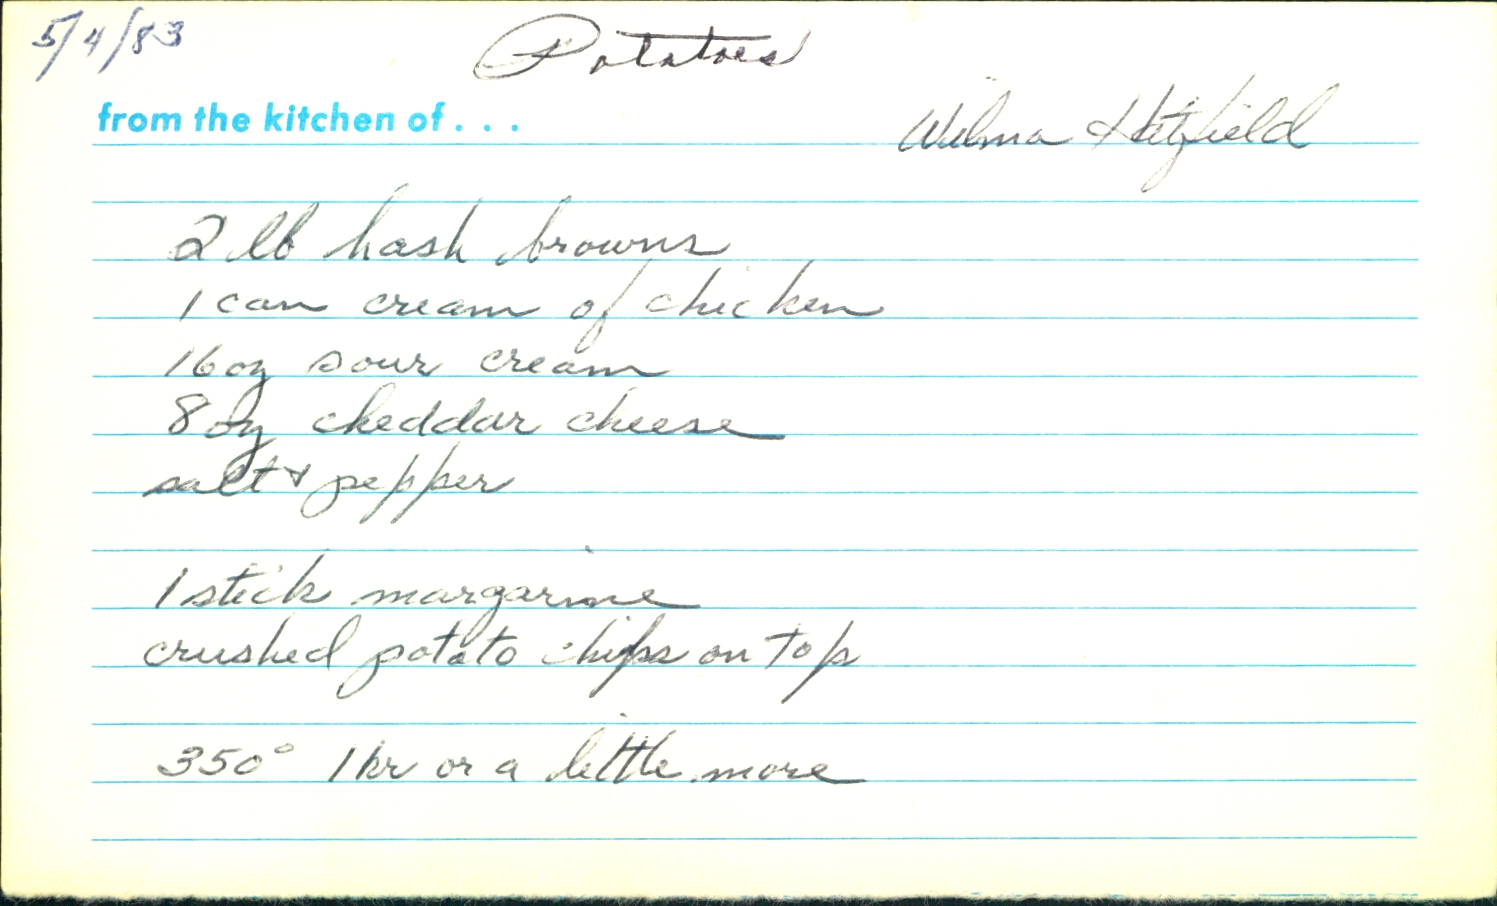 5/4/83
Potatoes
from the kitchen of . . .
Wilma Hatfield
2 lb hash browns
1 can cream of chicken
16 oz sour cream
8 oz cheddar cheese
salt & pepper
1 stick margarine
crushed potato chips on top
350° 1 hr or a little more